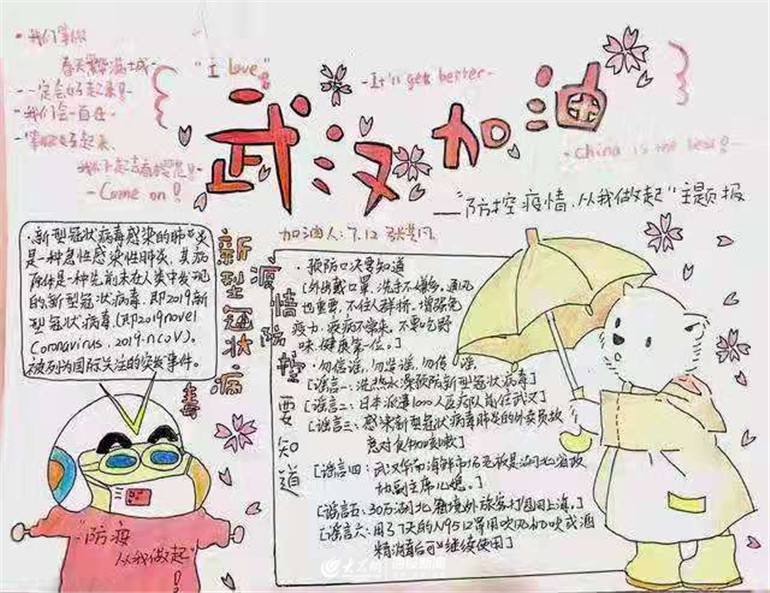 ·我们等你
春天繁华满城-
--定会好起来!-
-我们会一直在-
-等你好起来,
我们一起去看樱花!-
-Come on!
"I love"
武汉加油
-It's get better-
-China is the best!-
—"防控疫情,从我做起"主题报
加油人:7.12
·新型冠状病毒感染的肺炎
是一种急性感染性肺炎,其病
原体是一种先前未在人类中发现
的新型冠状病毒,即2019新
型冠状病毒(即2019novel
Coronavirus,2019-nCoV).
被列为国际关注的突发事件。
新型冠状病毒
疫情防控要知道
·预防口决要知道
[外出戴口罩,洗手不嫌多。通风
也重要,不往人群挤。增强免
疫力,疾病不袭来。不要吃野
味,健康第一位。]
·勿信谣,勿造谣,勿传谣
[谣言一:洗热水澡预防新型冠状病毒]
[谣言二:日本派遣1000人医疗队前往武汉]
[谣言三:感染新型冠状病毒肺炎的外卖员故
意对食物咳嗽]
[谣言四:武汉华南海鲜市场
副主席儿媳。]
[谣言五:30万湖北籍境外旅客打包回上海。]
[谣言六:用了7天的N95口罩用吹风机吹或酒
精消毒后可继续使用]
"防疫
从我做起"!